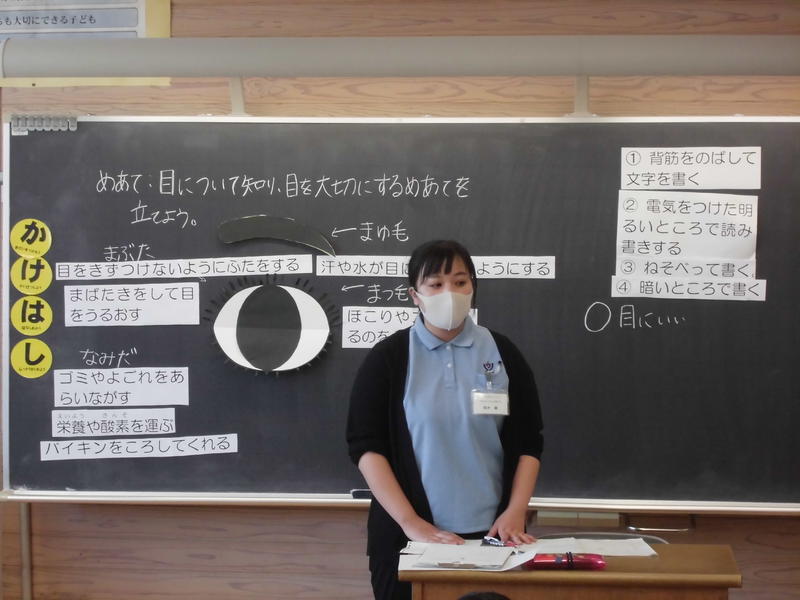 も大切にできる子ども
めあて：目について知り、目を大切にするめあてを
立てよう。
か
け
は
し
←まゆ毛
まぶた
目をきずつけないようにふたをする
汗や水が目に
ようにする
まばたきをして目
をうるおす
←まつ毛
ほこりや
るのを
なみだ
ゴミやよごれをあ
らいながす
えいよう さんそ
栄養や酸素を運ぶ
バイキンをころしてくれる
① 背筋をのばして
文字を書く
② 電気をつけた明
るいところで読み
書きする
③ ねそべって書く
④ 暗いところで書く
○目にいい